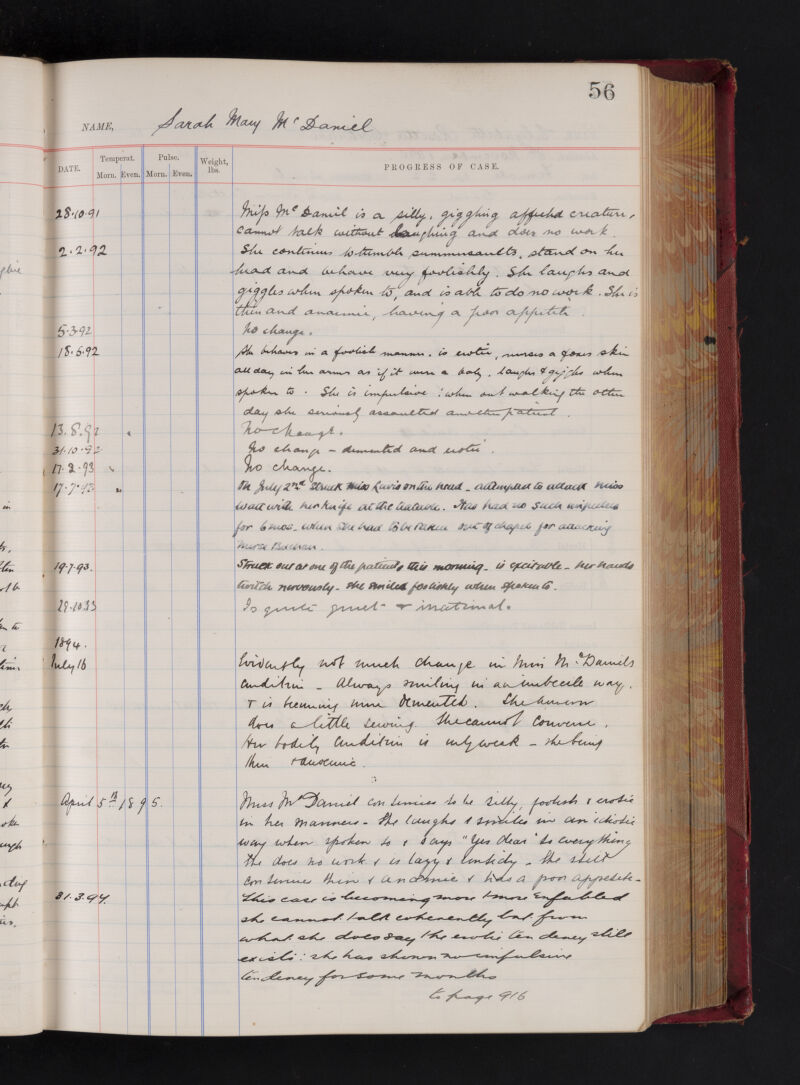 56
NAME, Sarah Mary McDaniel
DATE. Temperat. Pulse. Weight, lbs. PROGRESS OF CASE.
Morn. Even. Morn. Even.
28.10.91 Miss McDaniel is a silly, giggling affected creature,
cannot talk without laughing and does no work.
2.2.92 She continues to tumble summersaults, stand on her
head and behave very foolishly. She laughs and
giggles when spoken to, and is able to do no work. She is
thin and anaemic, having a poor appetite.
5.3.92 No change.
18.5.92 She behaves in a foolish manner. is erotic, nurses a foxes skin
all day in her arms as if it were a baby. laughs & giggles when
spoken to. She is impulsive: when out walking the other
day she seriously assaulted another patient.
13.8.92 " No change.
31.10.92 No change - demented and erotic.
17.2.93 " No change.
17.7.93 " On July 2nd struck Miss on the head - attempted to attack Miss
with her knife at the teatable. Has had no such impulses
for 6 mos. when she had to be taken out of chapel for attacking
Nurse
19.7.93. Struck out at one of the patients this morning - is excitable - her hands
twitch nervously - she smiled foolishly when spoken to.
28.10.93 Is quite quiet & irrational.
1894.
July 16 Evidently not much change in Miss McDaniels
condition - Always smiling in an imbecile way.
& is becoming more demented. She however
does a little sewing. She cannot converse.
Her bodily condition is only weak - she being
thin & anaemic.
April 5th 1895. Miss McDaniel continues to be silly, foolish & erotic
in her manners - She laughs & smiles in an idiotic
way when spoken to & says "Yes dear" to everything
She does no work & is lazy & untidy - She still
continues thin & anaemic & has a poor appetite -
31.3.97. This case is becoming more & more enfeebled
she cannot talk coherently but from
what she does say the erotic tendency still
exists: she has shown no impulsive
tendency for some months
to page 916